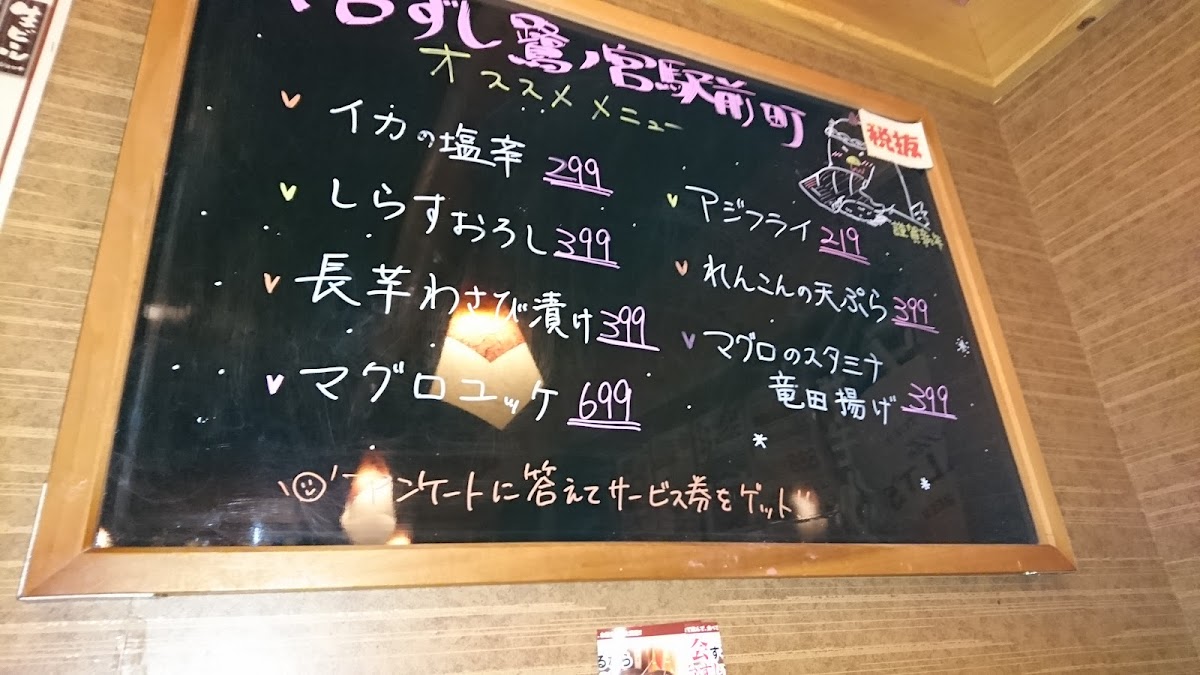 生ビール
ずし鷺ノ宮駅前町
オススメメニュー
税抜
イカの塩辛 299
しらすおろし 399
長芋わさび漬け 399
マグロユッケ 699
アジフライ 219
れんこんの天ぷら 399
マグロのスタミナ
竜田揚げ 399
謹賀新年
アンケートに答えてサービス券をゲット